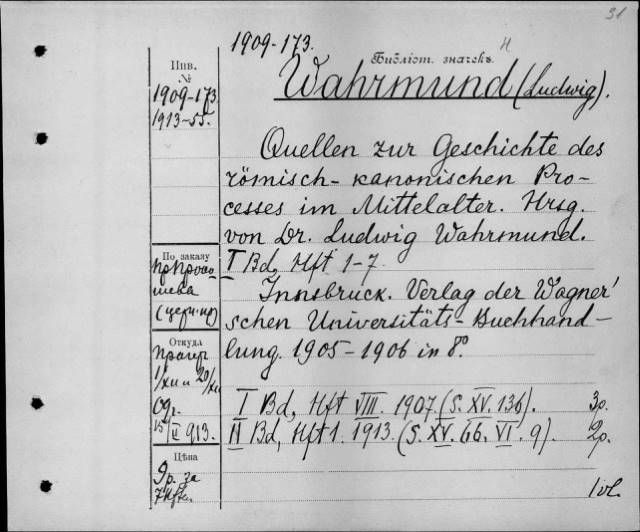 31
1909-173.
Библіот. значекъ
Инв.
№
Wahrmund (Ludwig).
1909-173
1913-55.
Quellen zur Geschichte des
römisch-kanonischen Pro-
cesses im Mittelalter. Hrsg.
von Dr. Ludwig Wahrmund.
По заказу
I Bd, Hft 1-7
Innsbruck. Verlag der Wagner'
schen Universitäts-Buchhand-
Откуда
lung. 1905-1906 in 8º.
I Bd, Hft VIII. 1907. (S. XV. 136). 3р.
15/II 913.
II Bd, Hft 1. 1913. (S. XV. 66. VI. 9). 2р.
Цѣна
9р. за
7 Hfte.
1 vol.